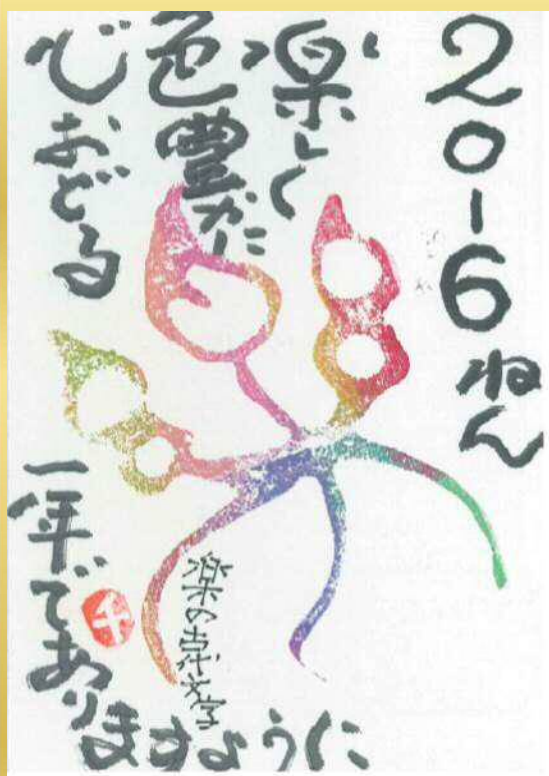 2016ねん
楽しく
色豊かに
心おどる
一年でありますように
楽の古代文字
千